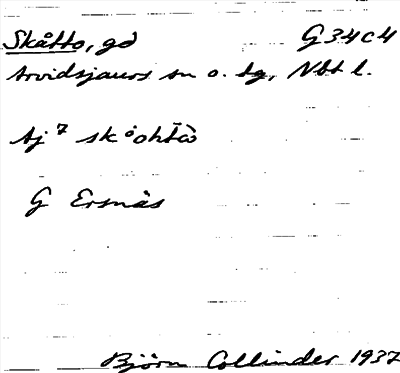 Skåtto, gd G 34 c 4
Arvidsjaurs sn o. tg, Nbt l.
Aj 7
G Ersnäs
Björn Collinder 1937